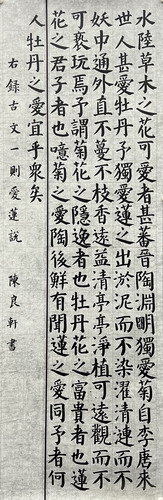 水陸草木之花可愛者甚蕃晉陶淵明獨愛菊自李唐來
世人甚愛牡丹予獨愛蓮之出淤泥而不染濯清漣而不
妖中通外直不蔓不枝香遠益清亭亭淨植可遠觀而不
可褻玩焉予謂菊花之隱逸者也牡丹花之富貴者也蓮
花之君子者也噫菊之愛陶後鮮有聞蓮之愛同予者何
人牡丹之愛宜乎衆矣
右錄古文一則愛蓮說 陳良軒書